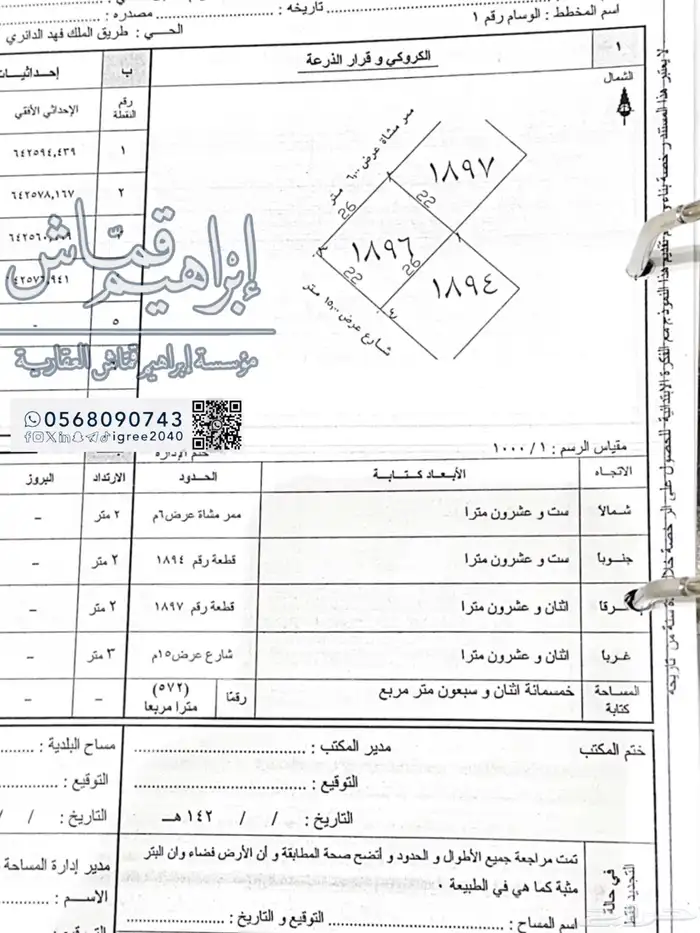 اسم المخطط : الوسام رقم ١
تاريخه :
مصدره :
الحـــي : طريق الملك فهد الدائري
١
الكروكي و قرار الذرعة
ب
الشمال
رقم النقطة
الإحداثي الأفقي
١
٦٤٢٥٩٤,٤٣٩
٢
٦٤٢٥٧٨,١٦٧
٥
-
ممر مشاة عرض ٦,٠٠ متر
١٨٩٧
22
26
١٨٩٦
26
22
١٨٩٤
شارع عرض ١٥,٠٠ متر
إبراهيم قمّاش
مؤسسة إبراهيم قمّاش العقارية
0568090743
igree2040
مقياس الرسم : ١ / ١٠٠٠
الاتجاه
الأبـعـاد كـتـابـة
الحدود
الارتداد
البروز
شـمـالا
ست و عشرون مترا
ممر مشاة عرض ٦م
٢ متر
-
جنـوبـا
ست و عشرون مترا
قطعة رقم ١٨٩٤
٢ متر
-
اثنان و عشرون مترا
قطعة رقم ١٨٩٧
٢ متر
-
غـربـا
إثنان و عشرون مترا
شارع عرض ١٥م
٣ متر
-
المساحة كتابة
خمسمائة اثنان و سبعون متر مربع
رقمًا
(٥٧٢) مترا مربعا
-
-
ختم المكتب
مدير المكتب :
مساح البلدية :
التوقيع :
التوقيع :
التاريخ : / / ١٤٢ هـــ
التاريخ : / /
في حالة التجديد فقط
تمت مراجعة جميع الأطوال و الحدود و أتضح صحة المطابقة و أن الأرض فضاء وان البتر
مثبة كما هي في الطبيعة .
مدير إدارة المساحة
الاســم :
اسم المساح :
التوقيع و التاريخ :